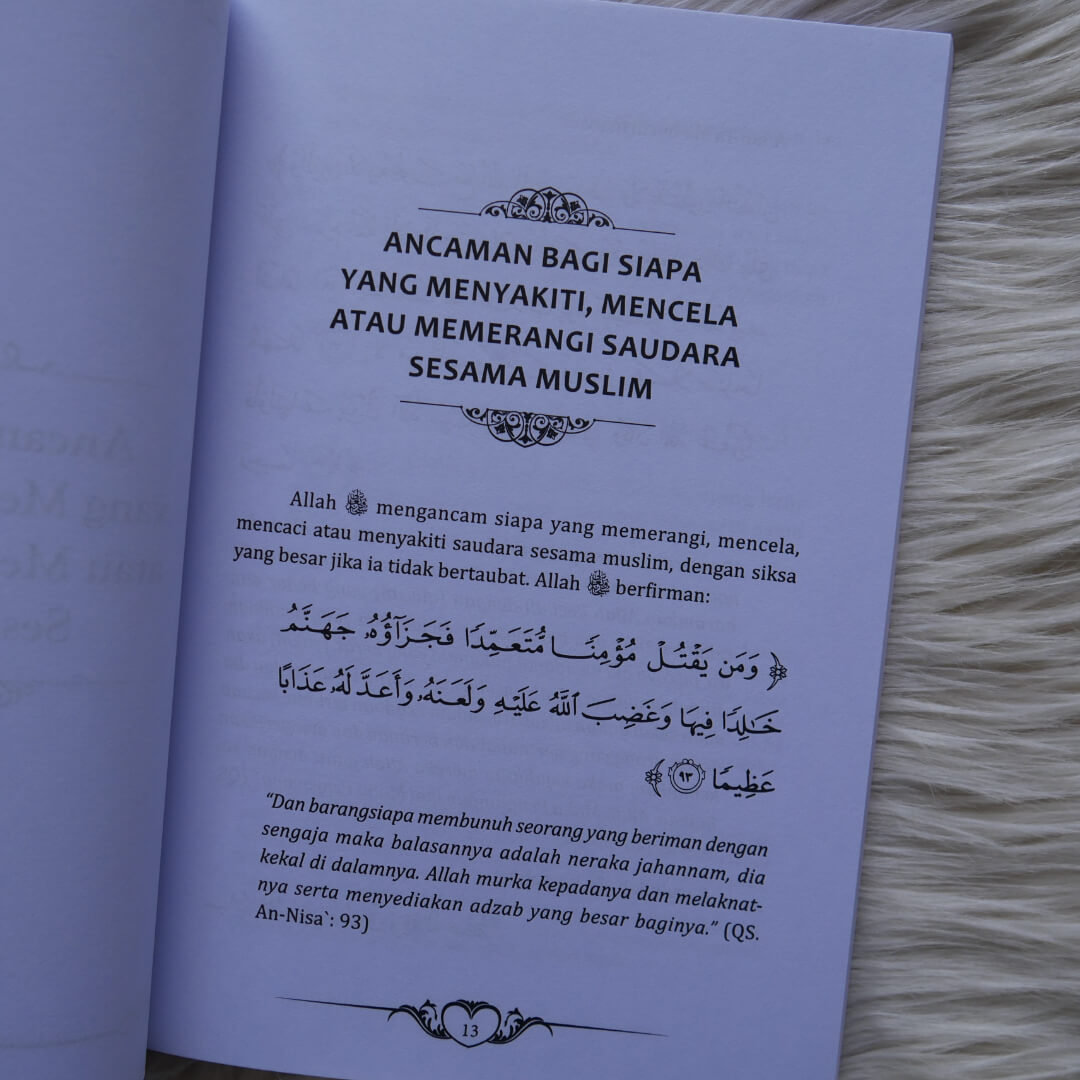 ANCAMAN BAGI SIAPA
YANG MENYAKITI, MENCELA
ATAU MEMERANGI SAUDARA
SESAMA MUSLIM
Allah ﷻ mengancam siapa yang memerangi, mencela,
mencaci atau menyakiti saudara sesama muslim, dengan siksa
yang besar jika ia tidak bertaubat. Allah ﷻ berfirman:
﴿ وَمَن يَقْتُلْ مُؤْمِنًا مُّتَعَمِّدًا فَجَزَآؤُهُۥ جَهَنَّمُ
خَٰلِدًا فِيهَا وَغَضِبَ ٱللَّهُ عَلَيْهِ وَلَعَنَهُۥ وَأَعَدَّ لَهُۥ عَذَابًا
عَظِيمًا ٩٣ ﴾
“Dan barangsiapa membunuh seorang yang beriman dengan
sengaja maka balasannya adalah neraka jahannam, dia
kekal di dalamnya. Allah murka kepadanya dan melaknat-
nya serta menyediakan adzab yang besar baginya.” (QS.
An-Nisa`: 93)
13